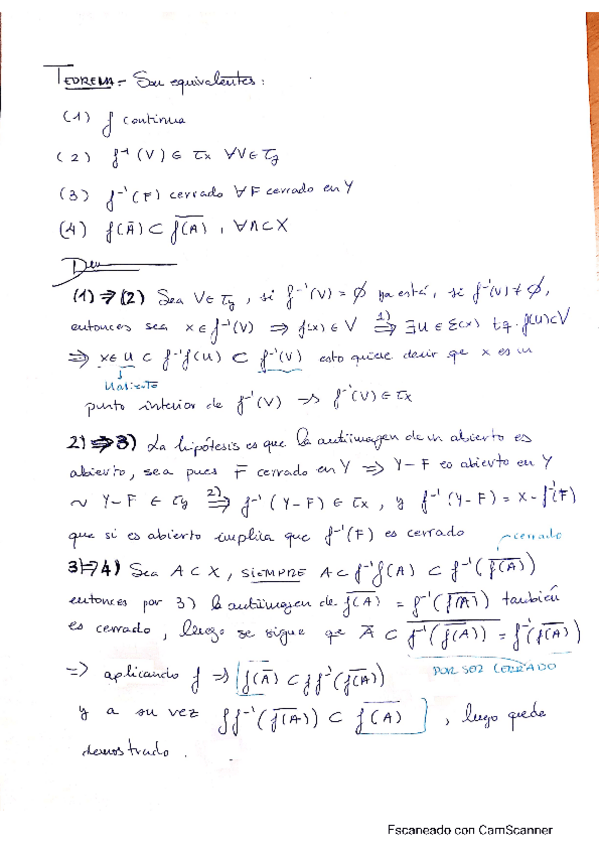 TEOREMA.- Son equivalentes:
(1) f continua
(2) f⁻¹(V) ∈ τx ∀V∈τy
(3) f⁻¹(F) cerrado ∀F cerrado en Y
(4) f(Ā) ⊂ \overline{f(A)}, ∀A⊂X
Dem
(1)⇒(2) Sea V∈τy, si f⁻¹(V) = ∅ ya está, si f⁻¹(V) ≠ ∅,
entonces sea x∈f⁻¹(V) ⇒ f(x)∈V ⇒^{1)} ∃U∈Ɛ(x) t.q. f(U)⊂V
⇒ x∈U ⊂ f⁻¹f(U) ⊂ f⁻¹(V) esto quiere decir que x es un
punto interior de f⁻¹(V) → f⁻¹(V)∈τx
2)⇒3) La hipótesis es que la antiimagen de un abierto es
abierto, sea pues F cerrado en Y ⇒ Y-F es abierto en Y
~ Y-F ∈ τy ⇒^{2)} f⁻¹(Y-F) ∈ τx, y f⁻¹(Y-F) = X-f⁻¹(F)
que si es abierto implica que f⁻¹(F) es cerrado
cerrado
3)⇒4) Sea A⊂X, SIEMPRE A⊂f⁻¹f(A) ⊂ f⁻¹(\overline{f(A)})
entonces por 3) la antiimagen de \overline{f(A)} = f⁻¹(\overline{f(A)}) también
es cerrado, luego se sigue que Ā ⊂ \overline{f⁻¹(\overline{f(A)})} = f⁻¹(\overline{f(A)})
POR SER CERRADO
⇒ aplicando f ⇒ [f(Ā) ⊂ ff⁻¹(\overline{f(A)})
y a su vez ff⁻¹(\overline{f(A)}) ⊂ \overline{f(A)} ], luego queda
demostrado.
Escaneado con CamScanner